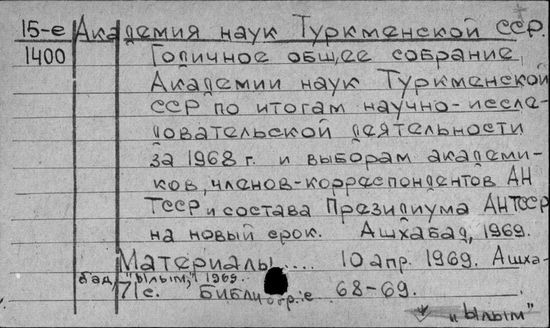 15-е Академия наук Туркменской ССР.
1400 Годичное общее собрание
Академии наук Туркменской
ССР по итогам научно-иссле-
довательской деятельности
за 1968 г. и выборам академи-
ков, членов-корреспондентов АН
ТССР и состава Президиума АН ТССР
на новый срок. Ашхабад, 1969.
Материалы .... 10 апр. 1969. Ашха-
бад, "Ылым", 1969.
71 с. Библиогр.: с. 68-69.
"Ылым"